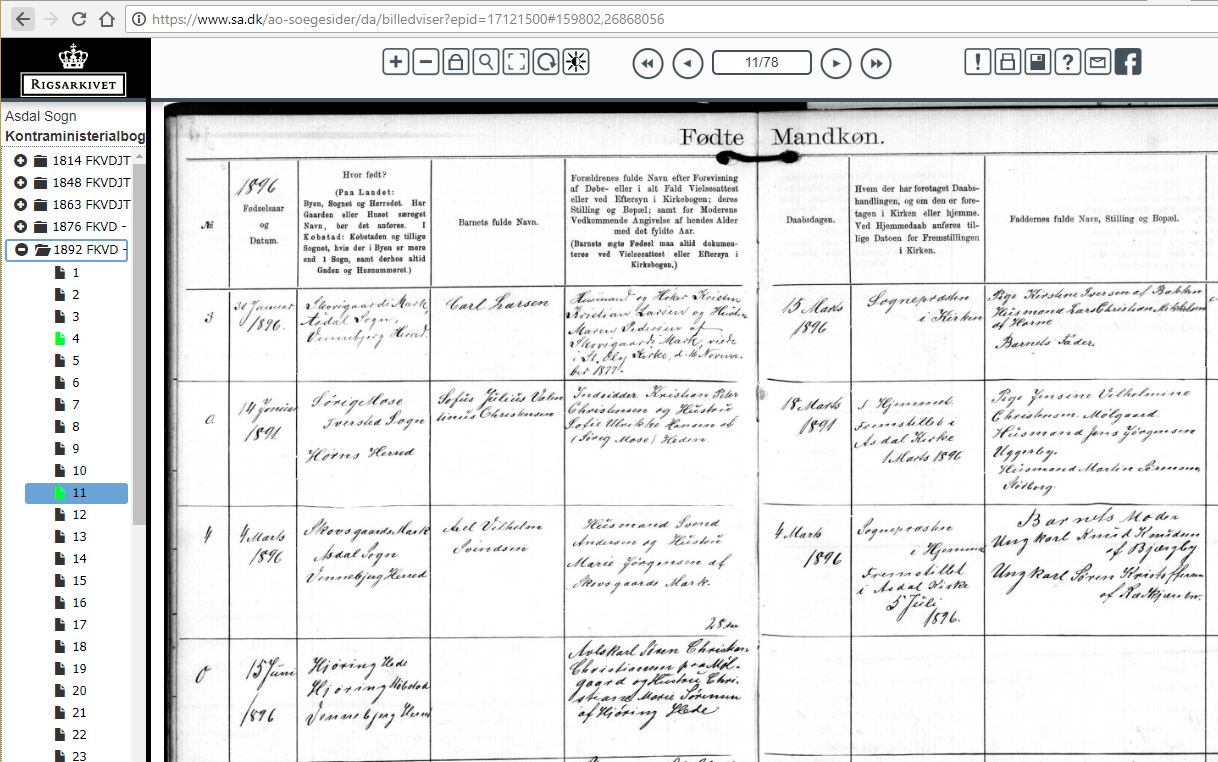 https://www.sa.dk/ao-soegesider/da/billedviser?epid=17121500#159802,26868056
RIGSARKIVET
11/78
Asdal Sogn
Kontraministerialbog
1814 FKVDJT
1848 FKVDJT
1863 FKVDJT
1876 FKVD -
1892 FKVD -
1
2
3
4
5
6
7
8
9
10
11
12
13
14
15
16
17
18
19
20
21
22
23
Fødte Mandkøn.
№
1896
Fødselsaar
og
Datum.
Hvor født?
(Paa Landet:
Byen, Sognet og Herredet. Har
Gaarden eller Huset særeget
Navn, bør det anføres. I
Købstad: Købstaden og tillige
Sognet, hvis der i Byen er mere
end 1 Sogn, samt derhos altid
Gaden og Husnummeret.)
Barnets fulde Navn.
Forældrenes fulde Navn efter Forevisning
af Døbe- eller i alt Fald Vielsesattest
eller ved Eftersyn i Kirkebogen; deres
Stilling og Bopæl; samt for Moderens
Vedkommende Angivelse af hendes Alder
med det fyldte Aar.
(Barnets ægte Fødsel maa altid dokumen-
teres ved Vielsesattest eller Eftersyn i
Kirkebogen.)
Daabsdagen.
Hvem der har foretaget Daabs-
handlingen, og om den er fore-
tagen i Kirken eller hjemme.
Ved Hjemmedaab anføres til-
lige Datoen for Fremstillingen
i Kirken.
Faddernes fulde Navn, Stilling og Bopæl.
3
30 Januar
1896.
Skovsgaards Mark,
Asdal Sogn,
Vennebjerg Herred.
Carl Larsen
Husmand og Høker Kristen
Kristian Larsen og Hustru
Maren Pedersen af
Skovsgaards Mark, viede
i St. Olai Kirke, d. 16 Novem-
ber 1877.
15 Marts
1896
Sognepræsten
i Kirken
Pige Kirstine Iversen af Bakken
Husmand Lars Christian Mikkelsen
af Horne
Barnets Fader.
0.
14 Januar
1891
Sørig Mose
Tversted Sogn
Horns Herred
Sofus Julius Valen
tinus Christensen
Indsidder Kristian Peter
Christensen og Hustru
Sofie Ulrikke Hansen af
(Sørig Mose) Heden
18 Marts
1891
i Hjemmet
Fremstillet i
Asdal Kirke
1 Marts 1896
Pige Jensine Vilhelmine
Christensen Mølgaard
Husmand Jens Jørgensen
Uggerby.
Husmand Martin Sørensen
4
4 Marts
1896
Skovsgaards Mark
Asdal Sogn
Vennebjerg Herred
Axel Vilhelm
Svendsen
Husmand Svend
Andersen og Hustru
Marie Jørgensen af
Skovsgaards Mark.
28 Aar
4 Marts
1896
Sognepræsten
i Hjemmet
Fremstillet
i Asdal Kirke
5 Juli
1896.
Barnets Moder
Ungkarl Knud Knudsen
af Bjergby
Ungkarl Søren Kristoffersen
af
0
15 Juni
1896
Hjøring Hede
Hjøring Købstad
Vennebjerg Herred
Avlskarl Søren Christian
Christiansen paa Møl-
gaard og Hustru Chri-
stiane Marie Sørensen
af Hjøring Hede